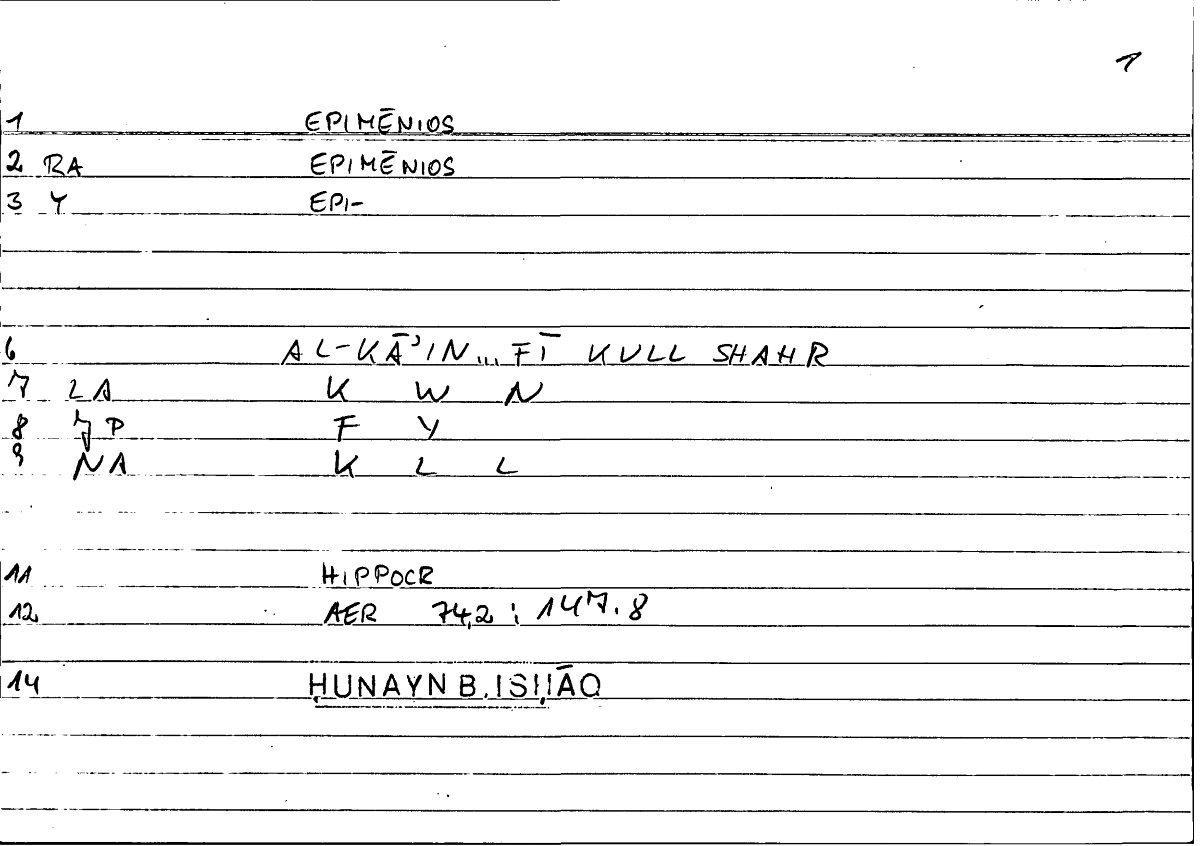 1
1 EPIMĒNIOS
2 RA EPIMĒNIOS
3 Y EPI-
6 AL-KĀʾIN... FĪ KULL SHAHR
7 LA K W N
8 JP F Y
9 NA K L L
11 HIPPOCR
12 AER 74,2 : 147.8
14 ḤUNAYN B. ISḤĀQ